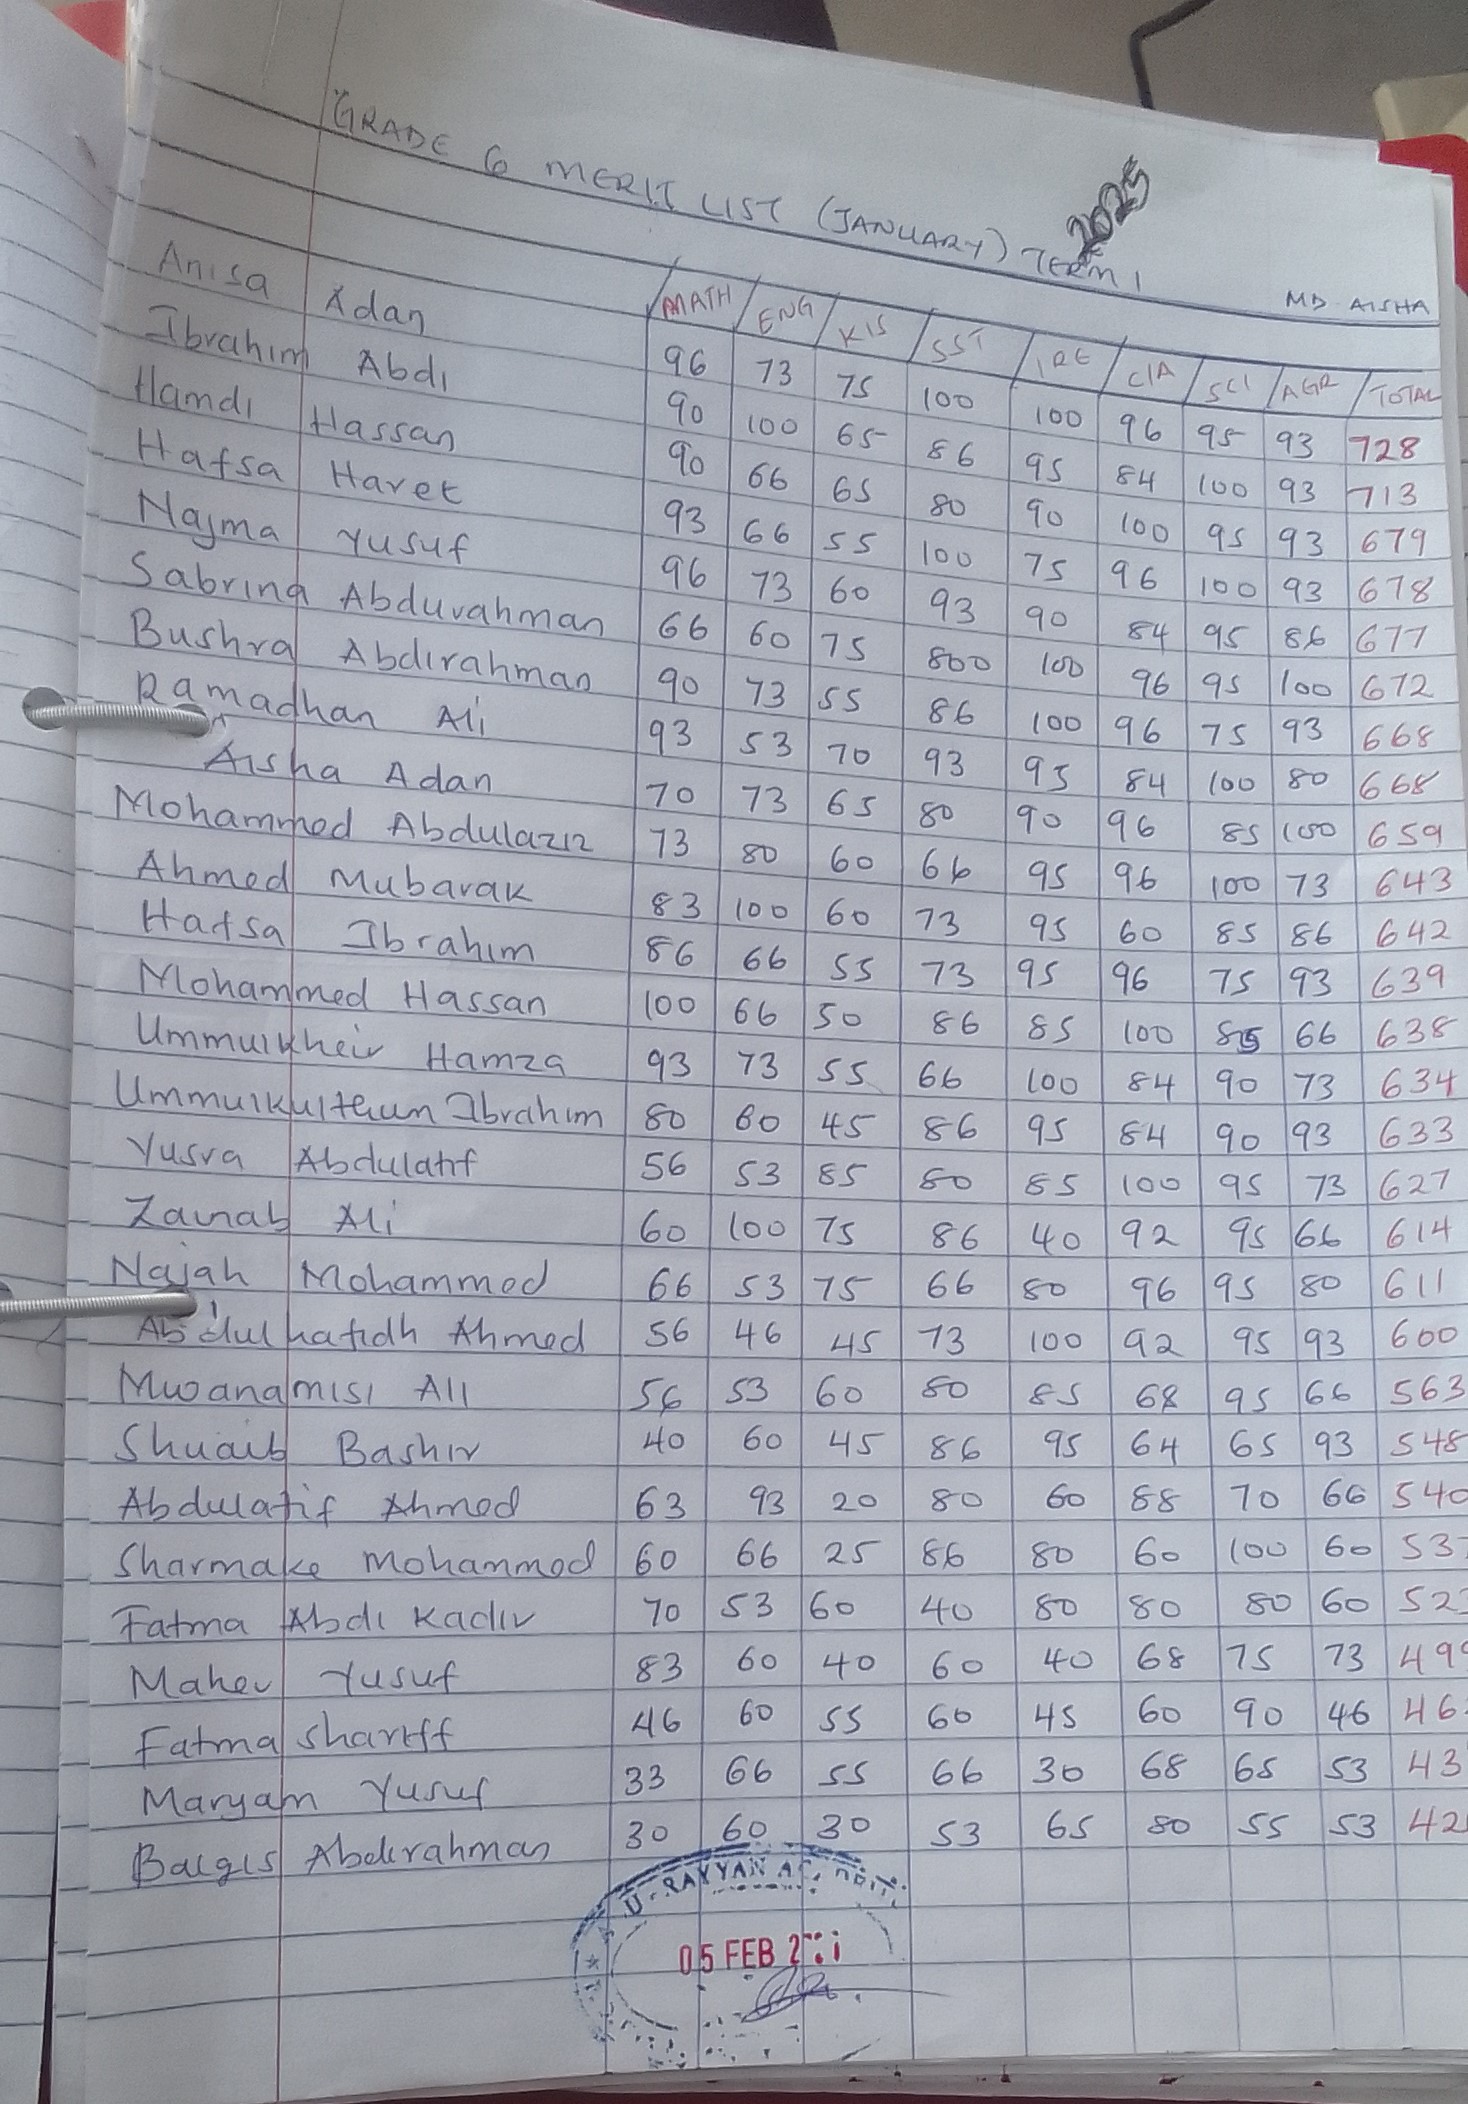 GRADE 6 MERIT LIST (JANUARY) TERM 1 2025
MD. AISHA
MATH ENG KIS SST IRE C/A SCI AGR TOTAL
Anisa Adan 96 73 75 100 100 96 95 93 728
Ibrahim Abdi 90 100 65 86 95 84 100 93 713
Hamdi Hassan 90 66 65 80 90 100 95 93 679
Hafsa Haret 93 66 55 100 75 96 100 93 678
Najma Yusuf 96 73 60 93 90 84 95 86 677
Sabrina Abdurahman 66 60 75 800 100 96 95 100 672
Bushra Abdirahman 90 73 55 86 100 96 75 93 668
Ramadhan Ali 93 53 70 93 95 84 100 80 668
Aisha Adan 70 73 65 80 90 96 85 100 659
Mohammed Abdulaziz 73 80 60 66 95 96 100 73 643
Ahmed Mubarak 83 100 60 73 95 60 85 86 642
Hafsa Ibrahim 86 66 55 73 95 96 75 93 639
Mohammed Hassan 100 66 50 86 85 100 85 66 638
Ummulkheir Hamza 93 73 55 66 100 84 90 73 634
Ummulkulthum Ibrahim 80 60 45 86 95 84 90 93 633
Yusra Abdulatif 56 53 85 80 85 100 95 73 627
Zainab Ali 60 100 75 86 40 92 95 66 614
Najah Mohammed 66 53 75 66 80 96 95 80 611
Abdulhafidh Ahmed 56 46 45 73 100 92 95 93 600
Mwanamisi Ali 56 53 60 80 85 68 95 66 563
Shuaib Bashir 40 60 45 86 95 64 65 93 548
Abdulatif Ahmed 63 93 20 80 60 88 70 66 540
Sharmake Mohammed 60 66 25 86 80 60 100 60 53
Fatma Abdi Kadir 70 53 60 40 80 80 80 60 52
Maher Yusuf 83 60 40 60 40 68 75 73 499
Fatma Shariff 46 60 55 60 45 60 90 46 46
Maryam Yusuf 33 66 55 66 30 68 65 53 43
Balqis Abdirahman 30 60 30 53 65 80 55 53 42
RAYYAN
05 FEB